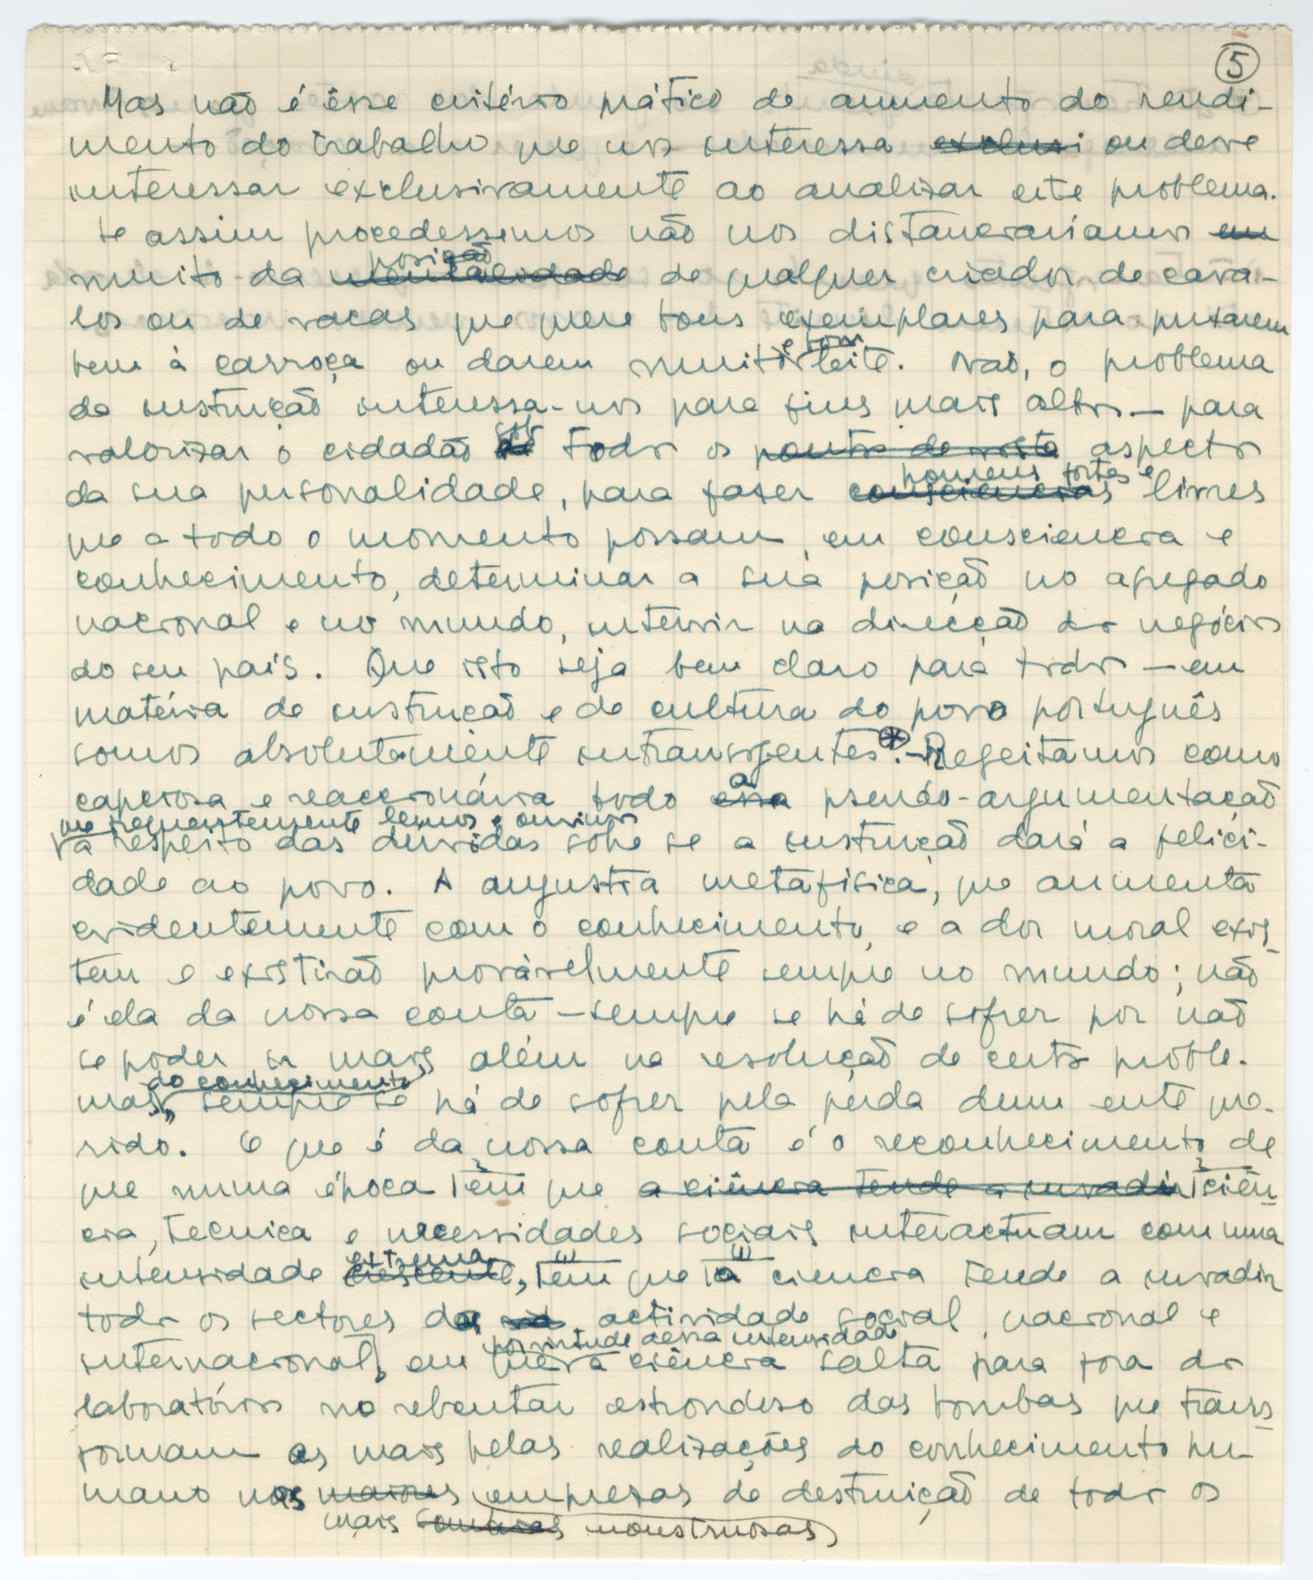 5
Mas não é êsse critério prático de aumento do rendi-
mento do trabalho que nos interessa exclusi ou deve
interessar exclusivamente ao analizar este problema.
Se assim procedessemos não nos distanciariamos em
posição
muito da mentalidade de qualquer criador de cava-
los ou de vacas que quere bons exemplares para puxarem
e bom
bem à carroça ou darem muito leite. Não, o problema
da instrução interessa-nos para fins mais altos — para
sob
valorizar o cidadão de todos os pontos de vista aspectos
homens fortes e
da sua personalidade, para fazer consciencias livres
que a todo o momento possam, em consciencia e
conhecimento, determinar a sua posição no agregado
nacional e no mundo, intervir na direcção dos negócios
do seu país. Que isto seja bem claro para todos — em
matéria de instrução e de cultura do povo português
somos absolutamente intransigentes. * — Regeitamos como
a
capciosa e reaccionária toda essa pseudo-argumentação
que frequentemente lemos e ouvimos
a respeito das duvidas sobre se a instrução dará a felici-
dade ao povo. A angustia metafisica, que aumenta
evidentemente com o conhecimento, e a dor moral exis-
tem e existirão provávelmente sempre no mundo; não
é ela da nossa conta — sempre se há de sofrer por não
se poder ir mais além na resolução de certos proble-
do conhecimento
mas, sempre se há de sofrer pela perda dum ente que-
rido. O que é da nossa conta é o reconhecimento de
2 2
que numa época em que a ciência tende a invadir ciên-
cia, tecnica e necessidades sociais interactuam com uma
extrema (1) (1)
intensidade crescente, em que a ciencia tende a invadir
todos os sectores da actividade social, nacional e
por virtude dessa intensidade
internacional, em que a ciência salta para fora dos
laboratórios no rebentar estrondoso das bombas que trans-
formam as mais belas realizações do conhecimento hu-
mano nas maiores empresas de destruição de todos os
mais sombrias monstruosas